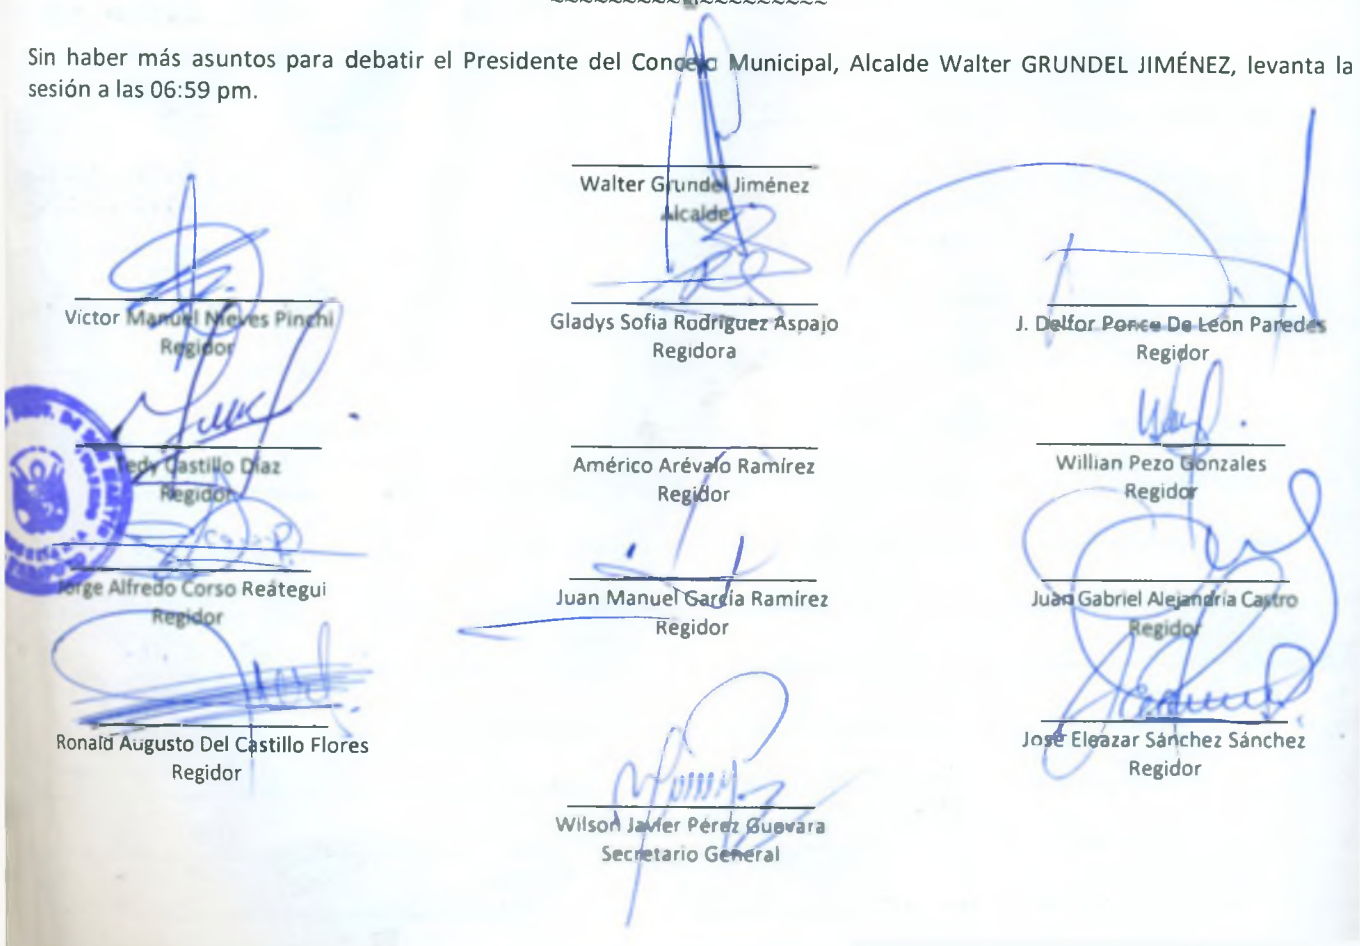 Sin haber más asuntos para debatir el Presidente del Concejo Municipal, Alcalde Walter GRUNDEL JIMÉNEZ, levanta la
sesión a las 06:59 pm.
Walter Grundel Jiménez
Alcalde
Victor Manuel Nieves Pinchi
Regidor
Gladys Sofia Rodriguez Aspajo
Regidora
J. Delfor Ponce De León Paredes
Regidor
Tedy Castillo Diaz
Regidor
Américo Arévalo Ramírez
Regidor
Willian Pezo Gonzales
Regidor
Jorge Alfredo Corso Reátegui
Regidor
Juan Manuel García Ramírez
Regidor
Juan Gabriel Alejandría Castro
Regidor
Ronald Augusto Del Castillo Flores
Regidor
José Eleazar Sánchez Sánchez
Regidor
Wilson Javier Pérez Guevara
Secretario General